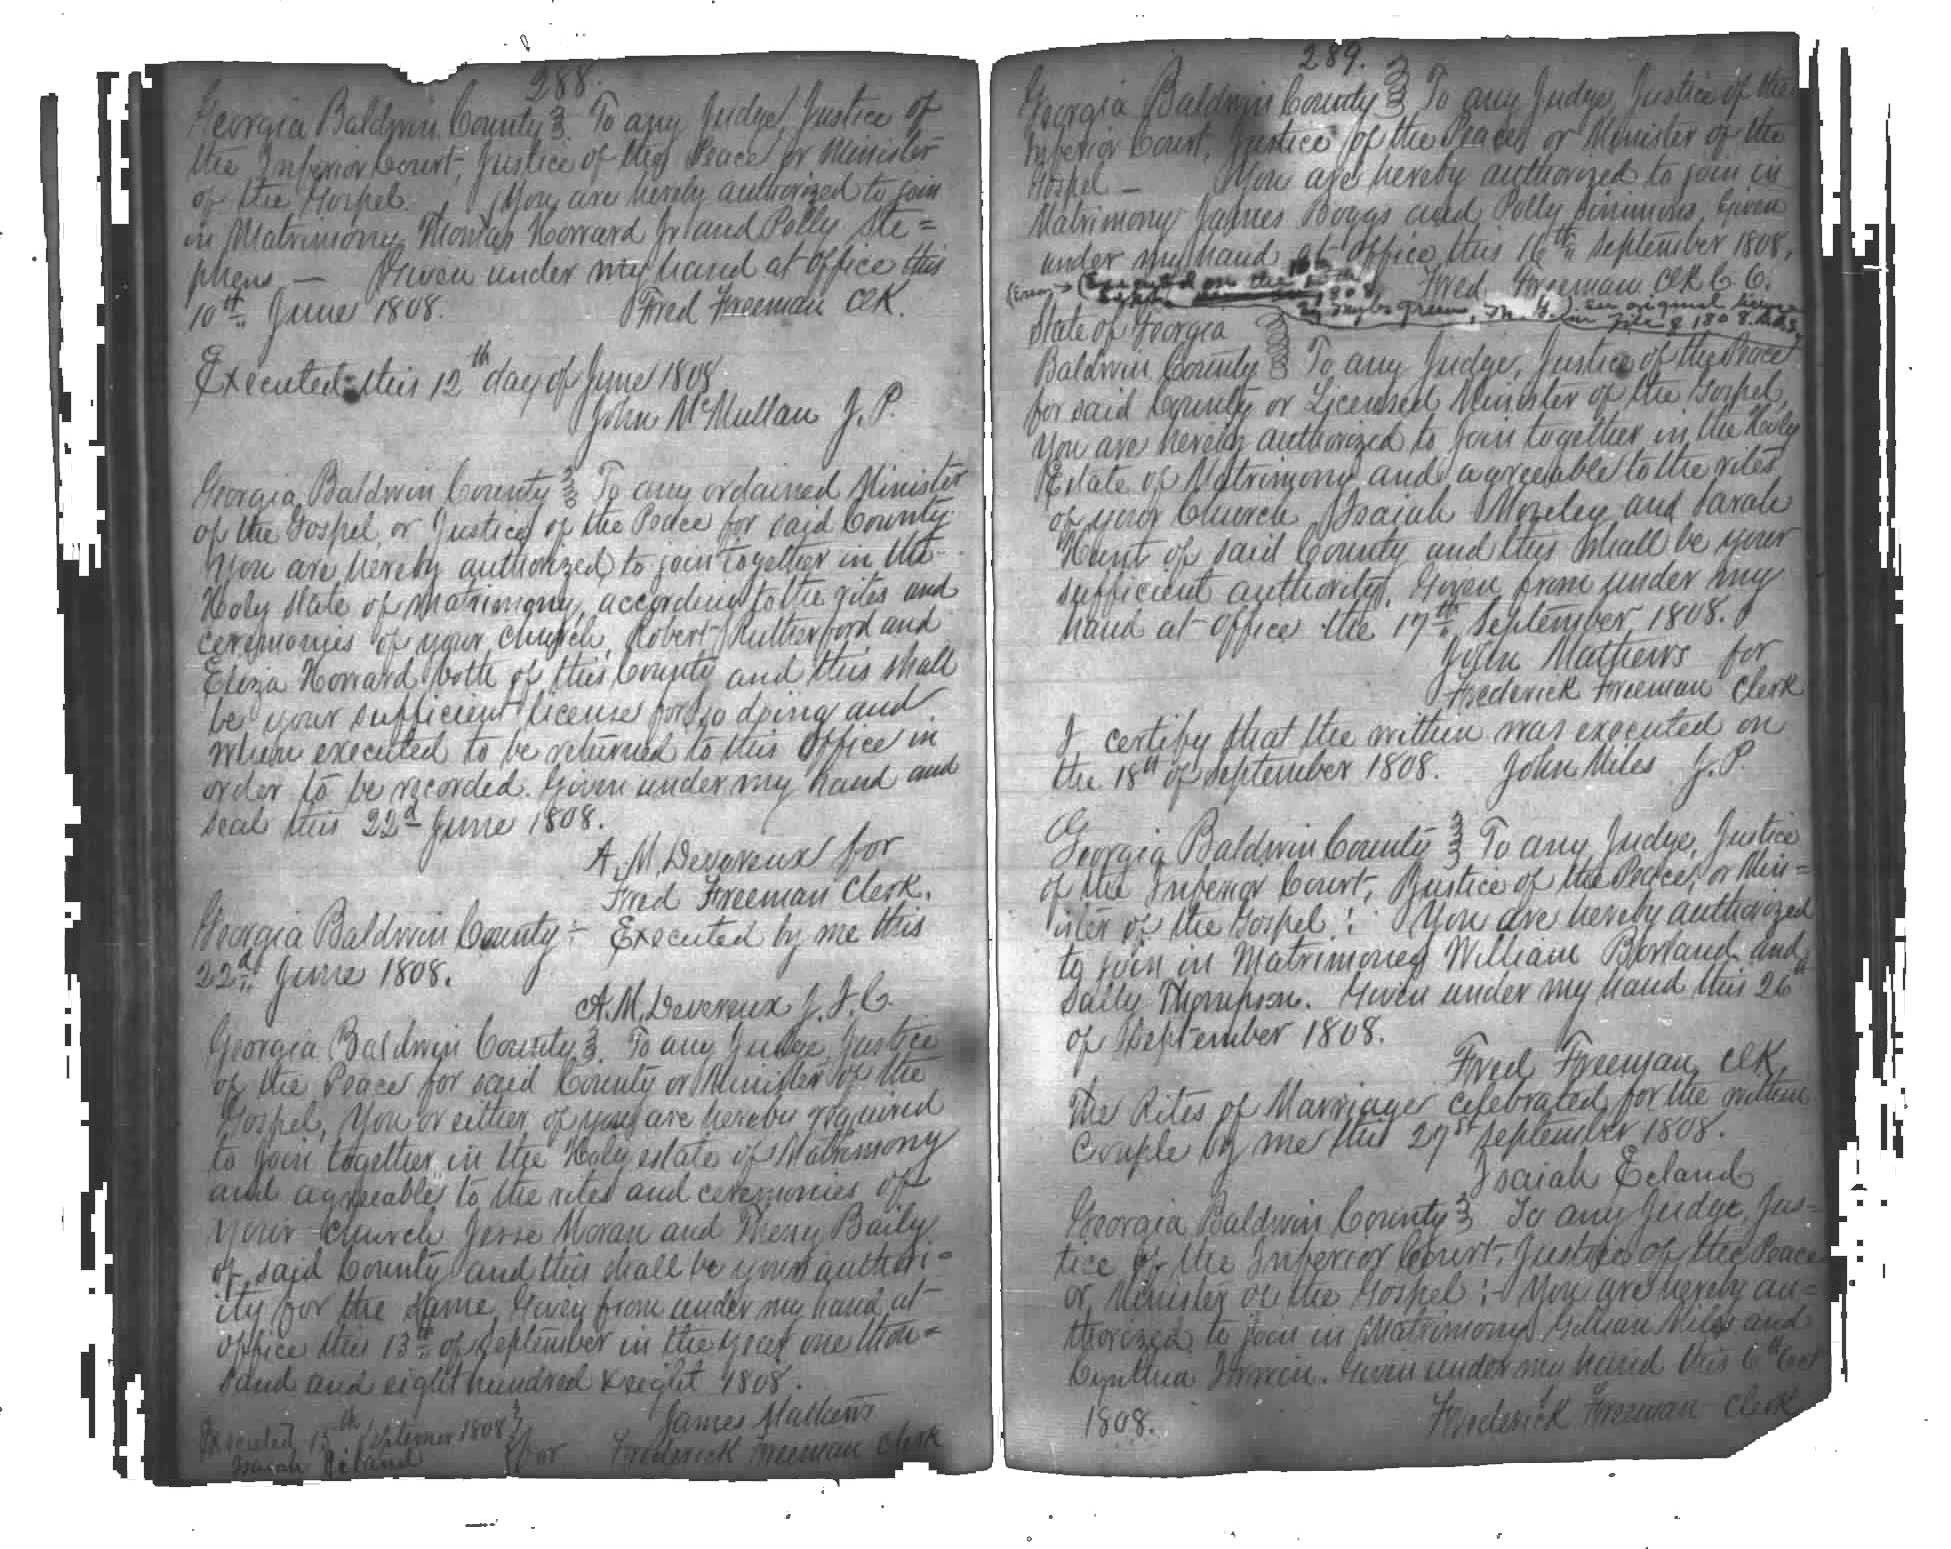 288.
Georgia Baldwin County } To any Judge, Justice of
the Inferior Court, Justice of the Peace or Minister
of the Gospel. You are hereby authorized to join
in Matrimony Thomas Howard Jr. and Polly Ste=
phens — Given under my hand at office this
10th June 1808. Fred Freeman Clk.
Executed this 12th day of June 1808
John McMullan J. P.
Georgia Baldwin County } To any ordained Minister
of the Gospel, or Justice of the Peace for said County
You are hereby authorized to join together in the
Holy state of matrimony, according to the rites and
ceremonies of your church, Robert Rutherford and
Eliza Howard both of this County and this shall
be your sufficient license for so doing and
when executed to be returned to this office in
order to be recorded. Given under my hand and
seal this 22d June 1808.
A. M. Devereux for
Fred Freeman Clerk.
Georgia Baldwin County :- Executed by me this
22d June 1808.
A. M. Devereux J. I. C.
Georgia Baldwin County } To any Judge, Justice
of the Peace for said County or Minister of the
Gospel, You or either of you are hereby required
to join together in the Holy estate of Matrimony
and agreeable to the rites and ceremonies of
your church Jesse Moran and Theny Baily
of said County and this shall be your author=
ity for the same, Given from under my hand at
office this 13th of September in the year one thou=
sand and eight hundred & eight 1808.
James Mathews
for Frederick Freeman Clerk
Executed 15th September 1808 }
Isaiah
289.
Georgia Baldwin County } To any Judge, Justice of the
Inferior Court, Justice of the Peace, or Minister of the
Gospel — You are hereby authorized to join in
Matrimony James Boggs and Polly Simmons, Given
under my hand at office this 16th September 1808.
Fred Freeman Clk C. C.
(Error → (Executed on the
1808
see original license
in file 1808.
State of Georgia
Baldwin County } To any Judge, Justice of the Peace
for said County or Licensed Minister of the Gospel,
You are hereby authorized to join together in the Holy
Estate of Matrimony and agreeable to the rites
of your Church Isaiah Mozeley and Sarah
Hunt of said County and this shall be your
sufficient authority. Given from under my
hand at office the 17th September 1808.
John Mathews for
Frederick Freeman Clerk
I certify that the within was executed on
the 18th of September 1808. John Miles J. P.
Georgia Baldwin County } To any Judge, Justice
of the Inferior Court, Justice of the Peace, or Min=
ister of the Gospel : You are hereby authorized
to join in Matrimony William Borland and
Sally Thompson. Given under my hand this 26th
of September 1808.
Fred Freeman Clk
The Rites of Marriage celebrated for the within
couple by me this 27st September 1808.
Isaiah Eeland
Georgia Baldwin County } To any Judge, Jus=
tice of the Inferior Court, Justice of the Peace
or Minister of the Gospel :- You are hereby au=
thorized to join in Matrimony Niles and
Cynthia Irwin. Given under my hand this 6th Oct
1808. Frederick Freeman Clerk